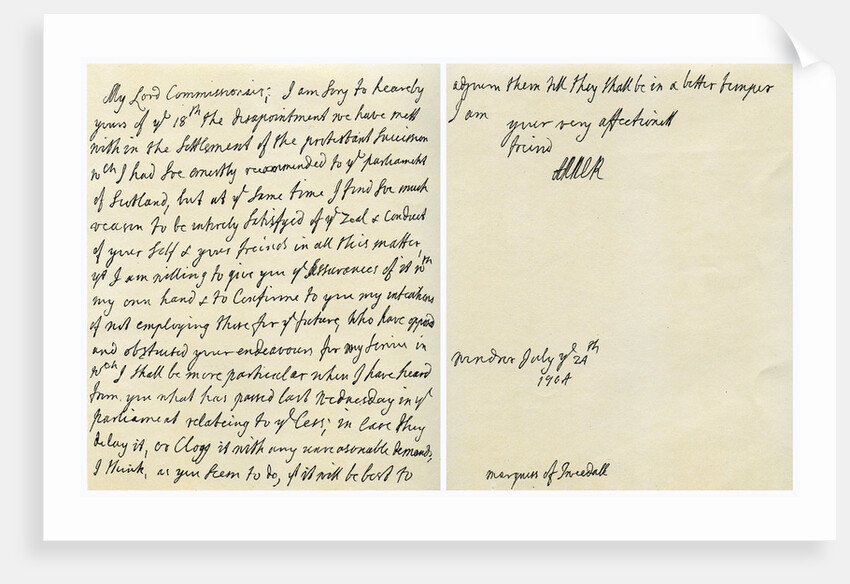 My Lord Commissioner; I am sory to heareby
yours of yᵉ 18ᵗʰ the disapointment we have mett
with in the Settlement of the protestant Succession
wᶜʰ I had soe ernestly recommended to yᵉ parliament
of Scotland, but at yᵉ same time I find soe much
reason to be intirely satisfyed of yᵉ Zeal & Conduct
of your self & your freinds in all this matter,
yᵗ I am willing to give you yᵉ assurances of it wᵗʰ
my own hand & to Confirme to you my intentions
of not employing those for yᵉ future, who have opposd
and obstructed your endeavours for my Service in
wᶜʰ I shall be more particular when I have heard
from you what has passed last Wednesday in yᵉ
parliament relateing to yᵉ Cess; in case they
delay it, or Clogg it with any unreasonable demands,
I think, as you seem to do, yᵗ it will be best to
adjurn them till they shall be in a better temper
I am
your very affectionett
freind
ANNE R
Windsor July yᵉ 24ᵗʰ
1704
marquess of Tweedall